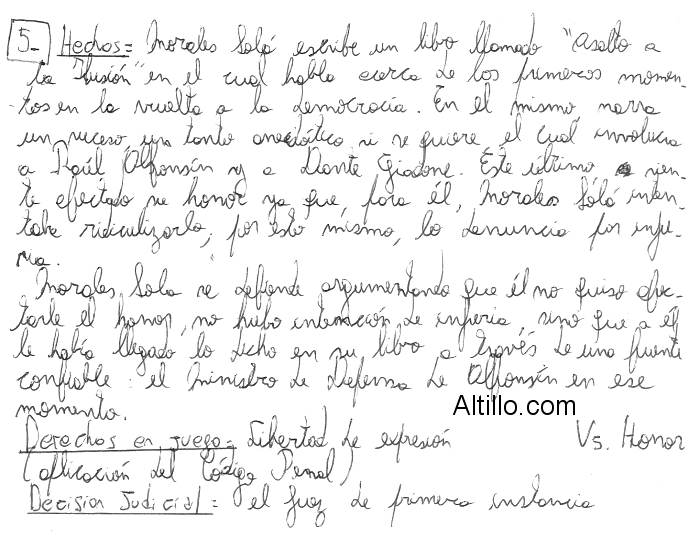 5- Hechos= Morales Solá escribe un libro llamado "Asalto a
la Ilusión" en el cual habla acerca de los primeros momen-
tos en la vuelta a la democracia. En el mismo, narra
un suceso, un tanto anecdótico si se quiere, el cual involucra
a Raúl Alfonsín y a Dante Giadone. Éste último, sien-
te afectado su honor ya que, para él, Morales Sólá inten-
taba ridiculizarlo; por esto mismo, lo denuncia por inju-
ria.
Morales Sola se defiende argumentando que él no quiso afec-
tarle el honor, no hubo intención de injuria, sino que a él
le había llegado lo dicho en su libro a través de una fuente
confiable: el Ministro de Defensa de Alfonsín en ese
momento.
Altillo.com
Derechos en juego= Libertad de expresión Vs. Honor
(aplicación del Código Penal)
Décision Judicial= el juez de primera instancia